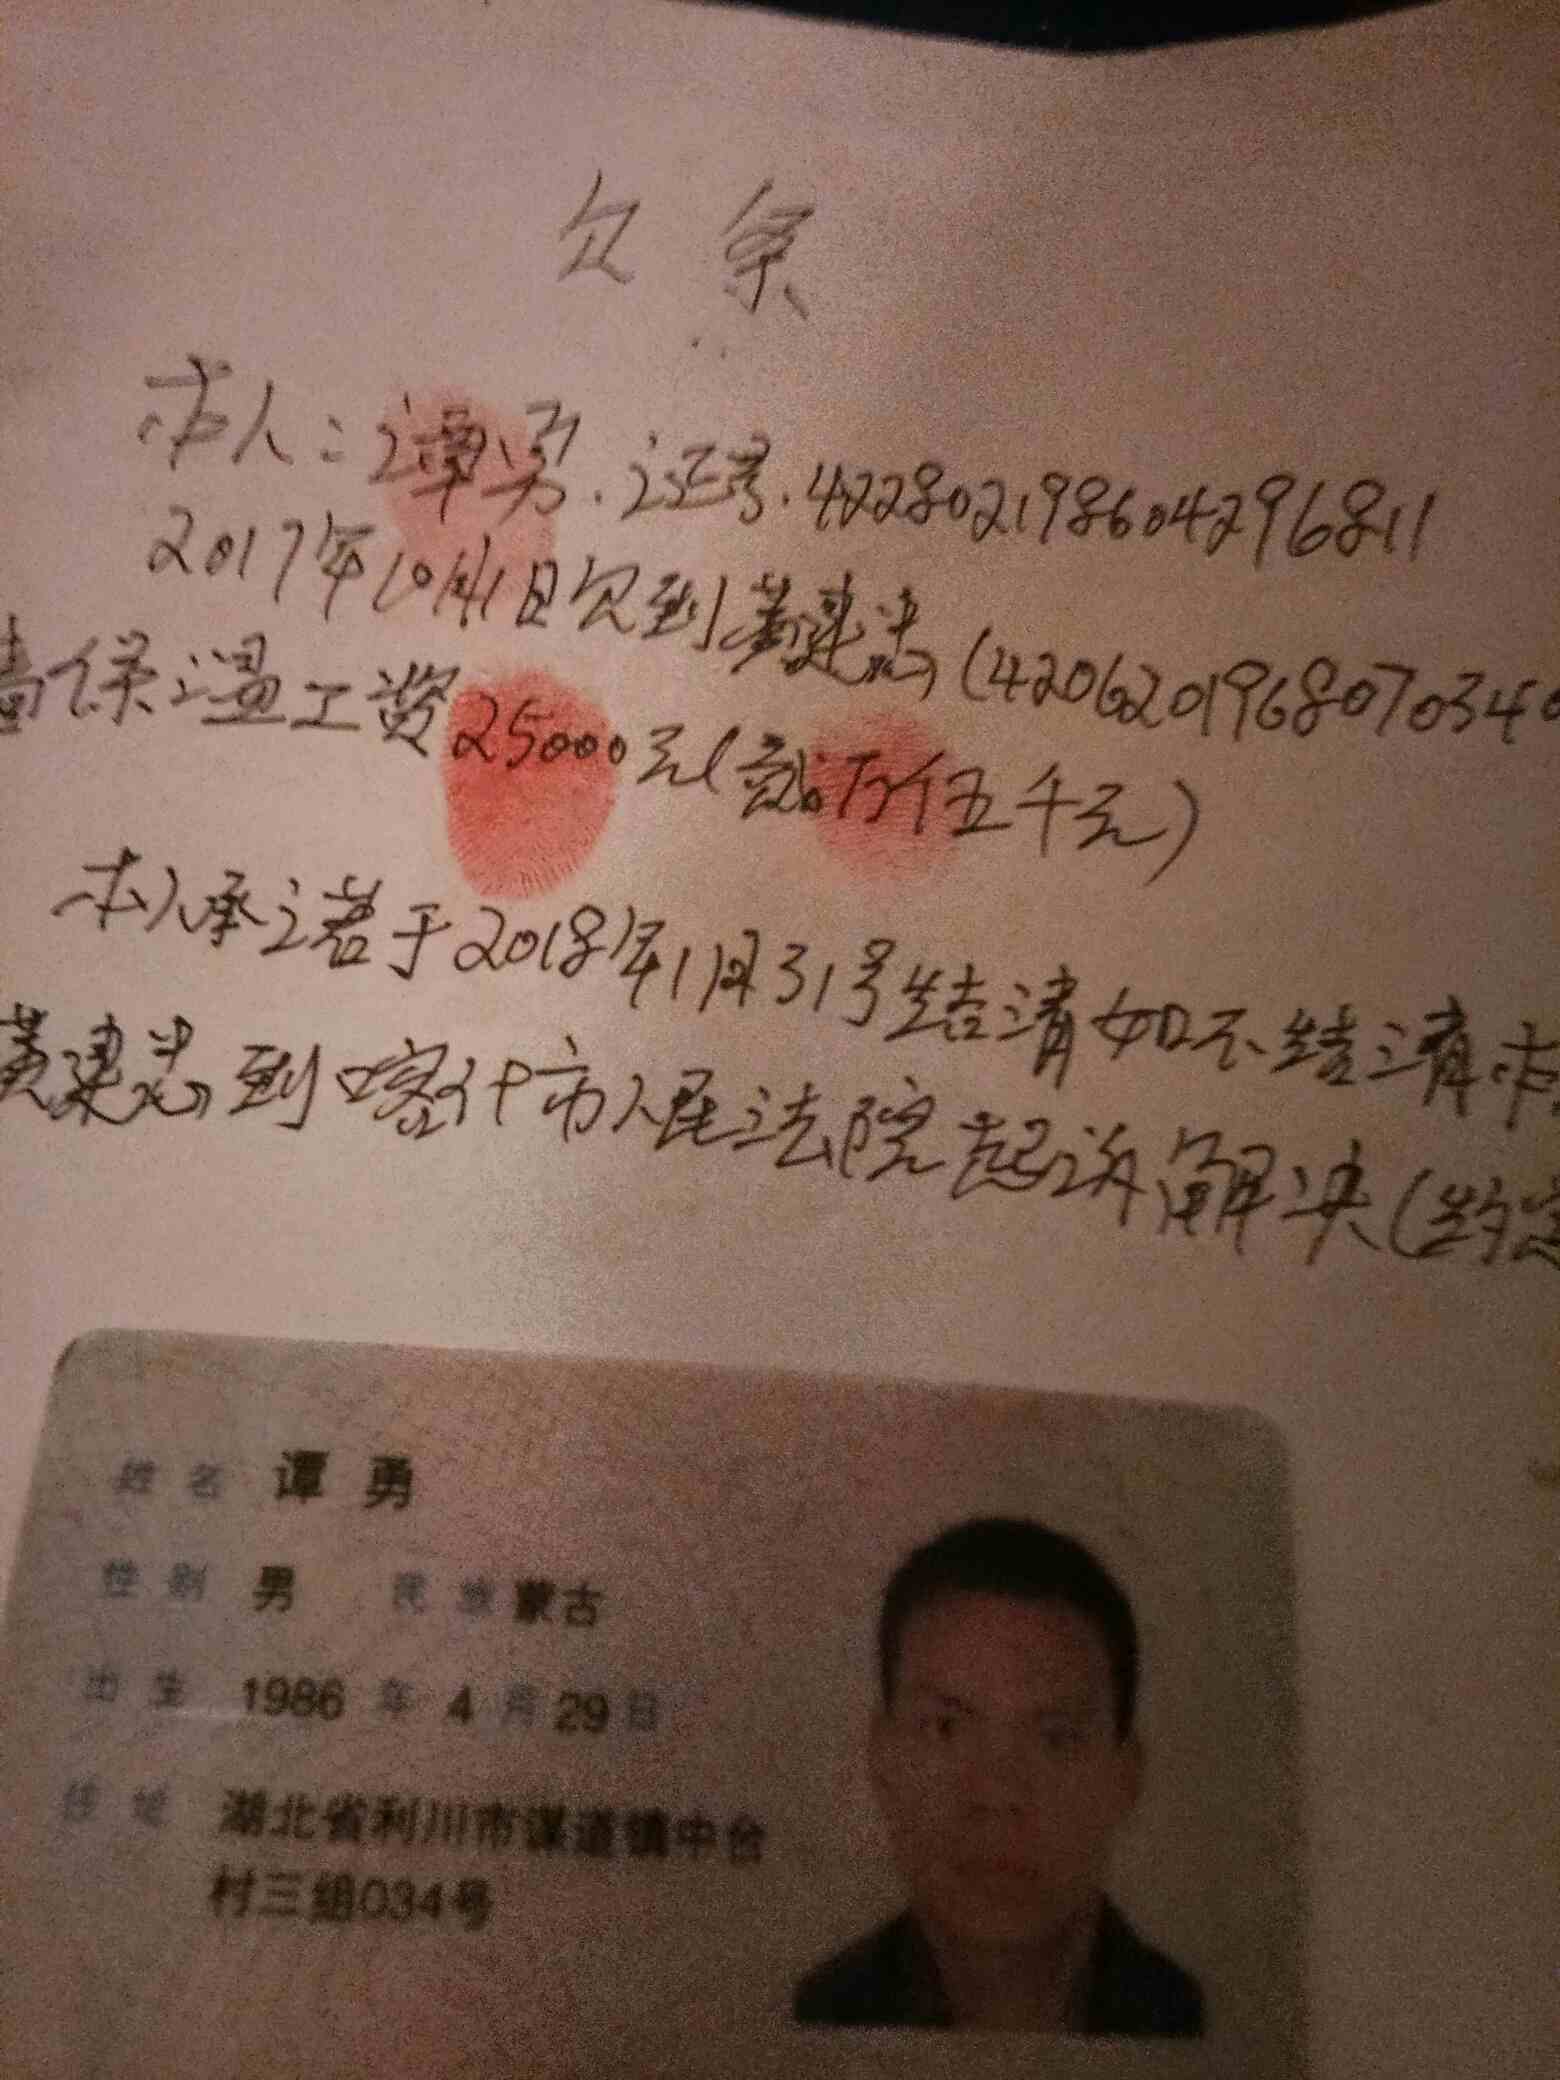 欠条
本人:谭勇.证号.422802198604296811
2017年10月1日欠到黄建忠(4206201968070340
墙保温工资25000元(贰万伍千元)
本人承诺若于2018年1月31号结清如不结清本
黄建忠到喀什市人民法院起诉解决(约定
姓名 谭勇
性别 男 民族 蒙古
出生 1986年4月29日
住址 湖北省利川市谋道镇中台
村三组034号